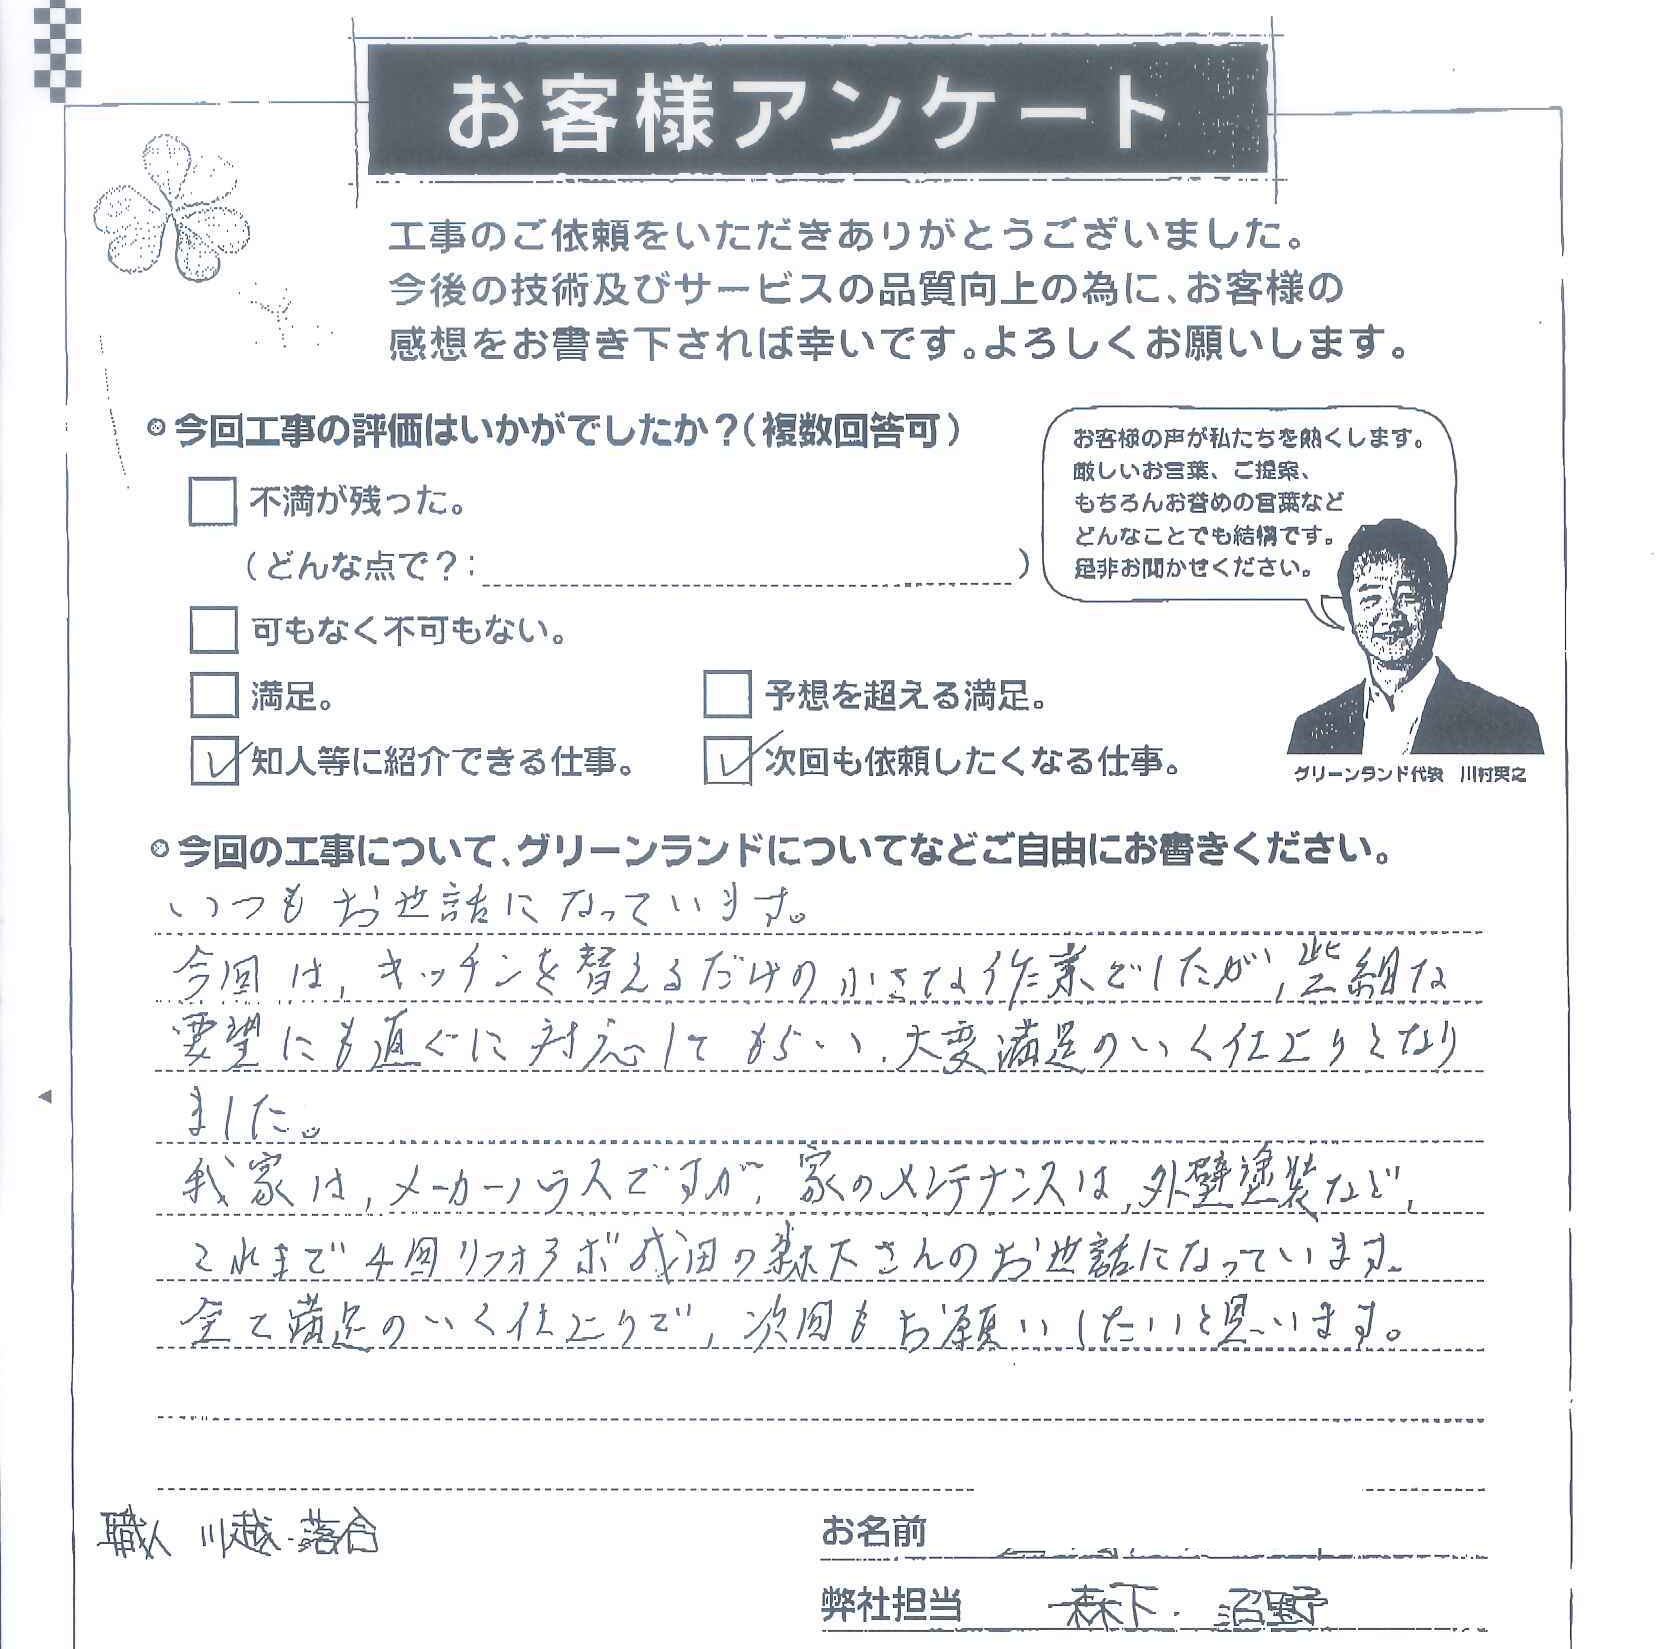 お客様アンケート
工事のご依頼をいただきありがとうございました。
今後の技術及びサービスの品質向上の為に、お客様の
感想をお書き下されば幸いです。よろしくお願いします。
今回工事の評価はいかがでしたか？（複数回答可）
不満が残った。
（どんな点で？： ）
可もなく不可もない。
満足。 予想を超える満足。
知人等に紹介できる仕事。 次回も依頼したくなる仕事。
お客様の声が私たちを熱くします。
厳しいお言葉、ご提案、
もちろんお誉めの言葉など
どんなことでも結構です。
是非お聞かせください。
グリーンランド代表 川村英之
今回の工事について、グリーンランドについてなどご自由にお書きください。
いつもお世話になっています。
今回は、キッチンを替えるだけの小さな作業でしたが、些細な
要望にも直ぐに対応してもらい、大変満足のいく仕上りとなり
ました。
我家は、メーカーハウスですが、家のメンテナンスは、外壁塗装など、
これまで4回リフォラボ成田の森下さんのお世話になっています。
全て満足のいく仕上りで、次回もお願いしたいと思います。
職人 川越・落合
お名前
弊社担当 森下・沼野